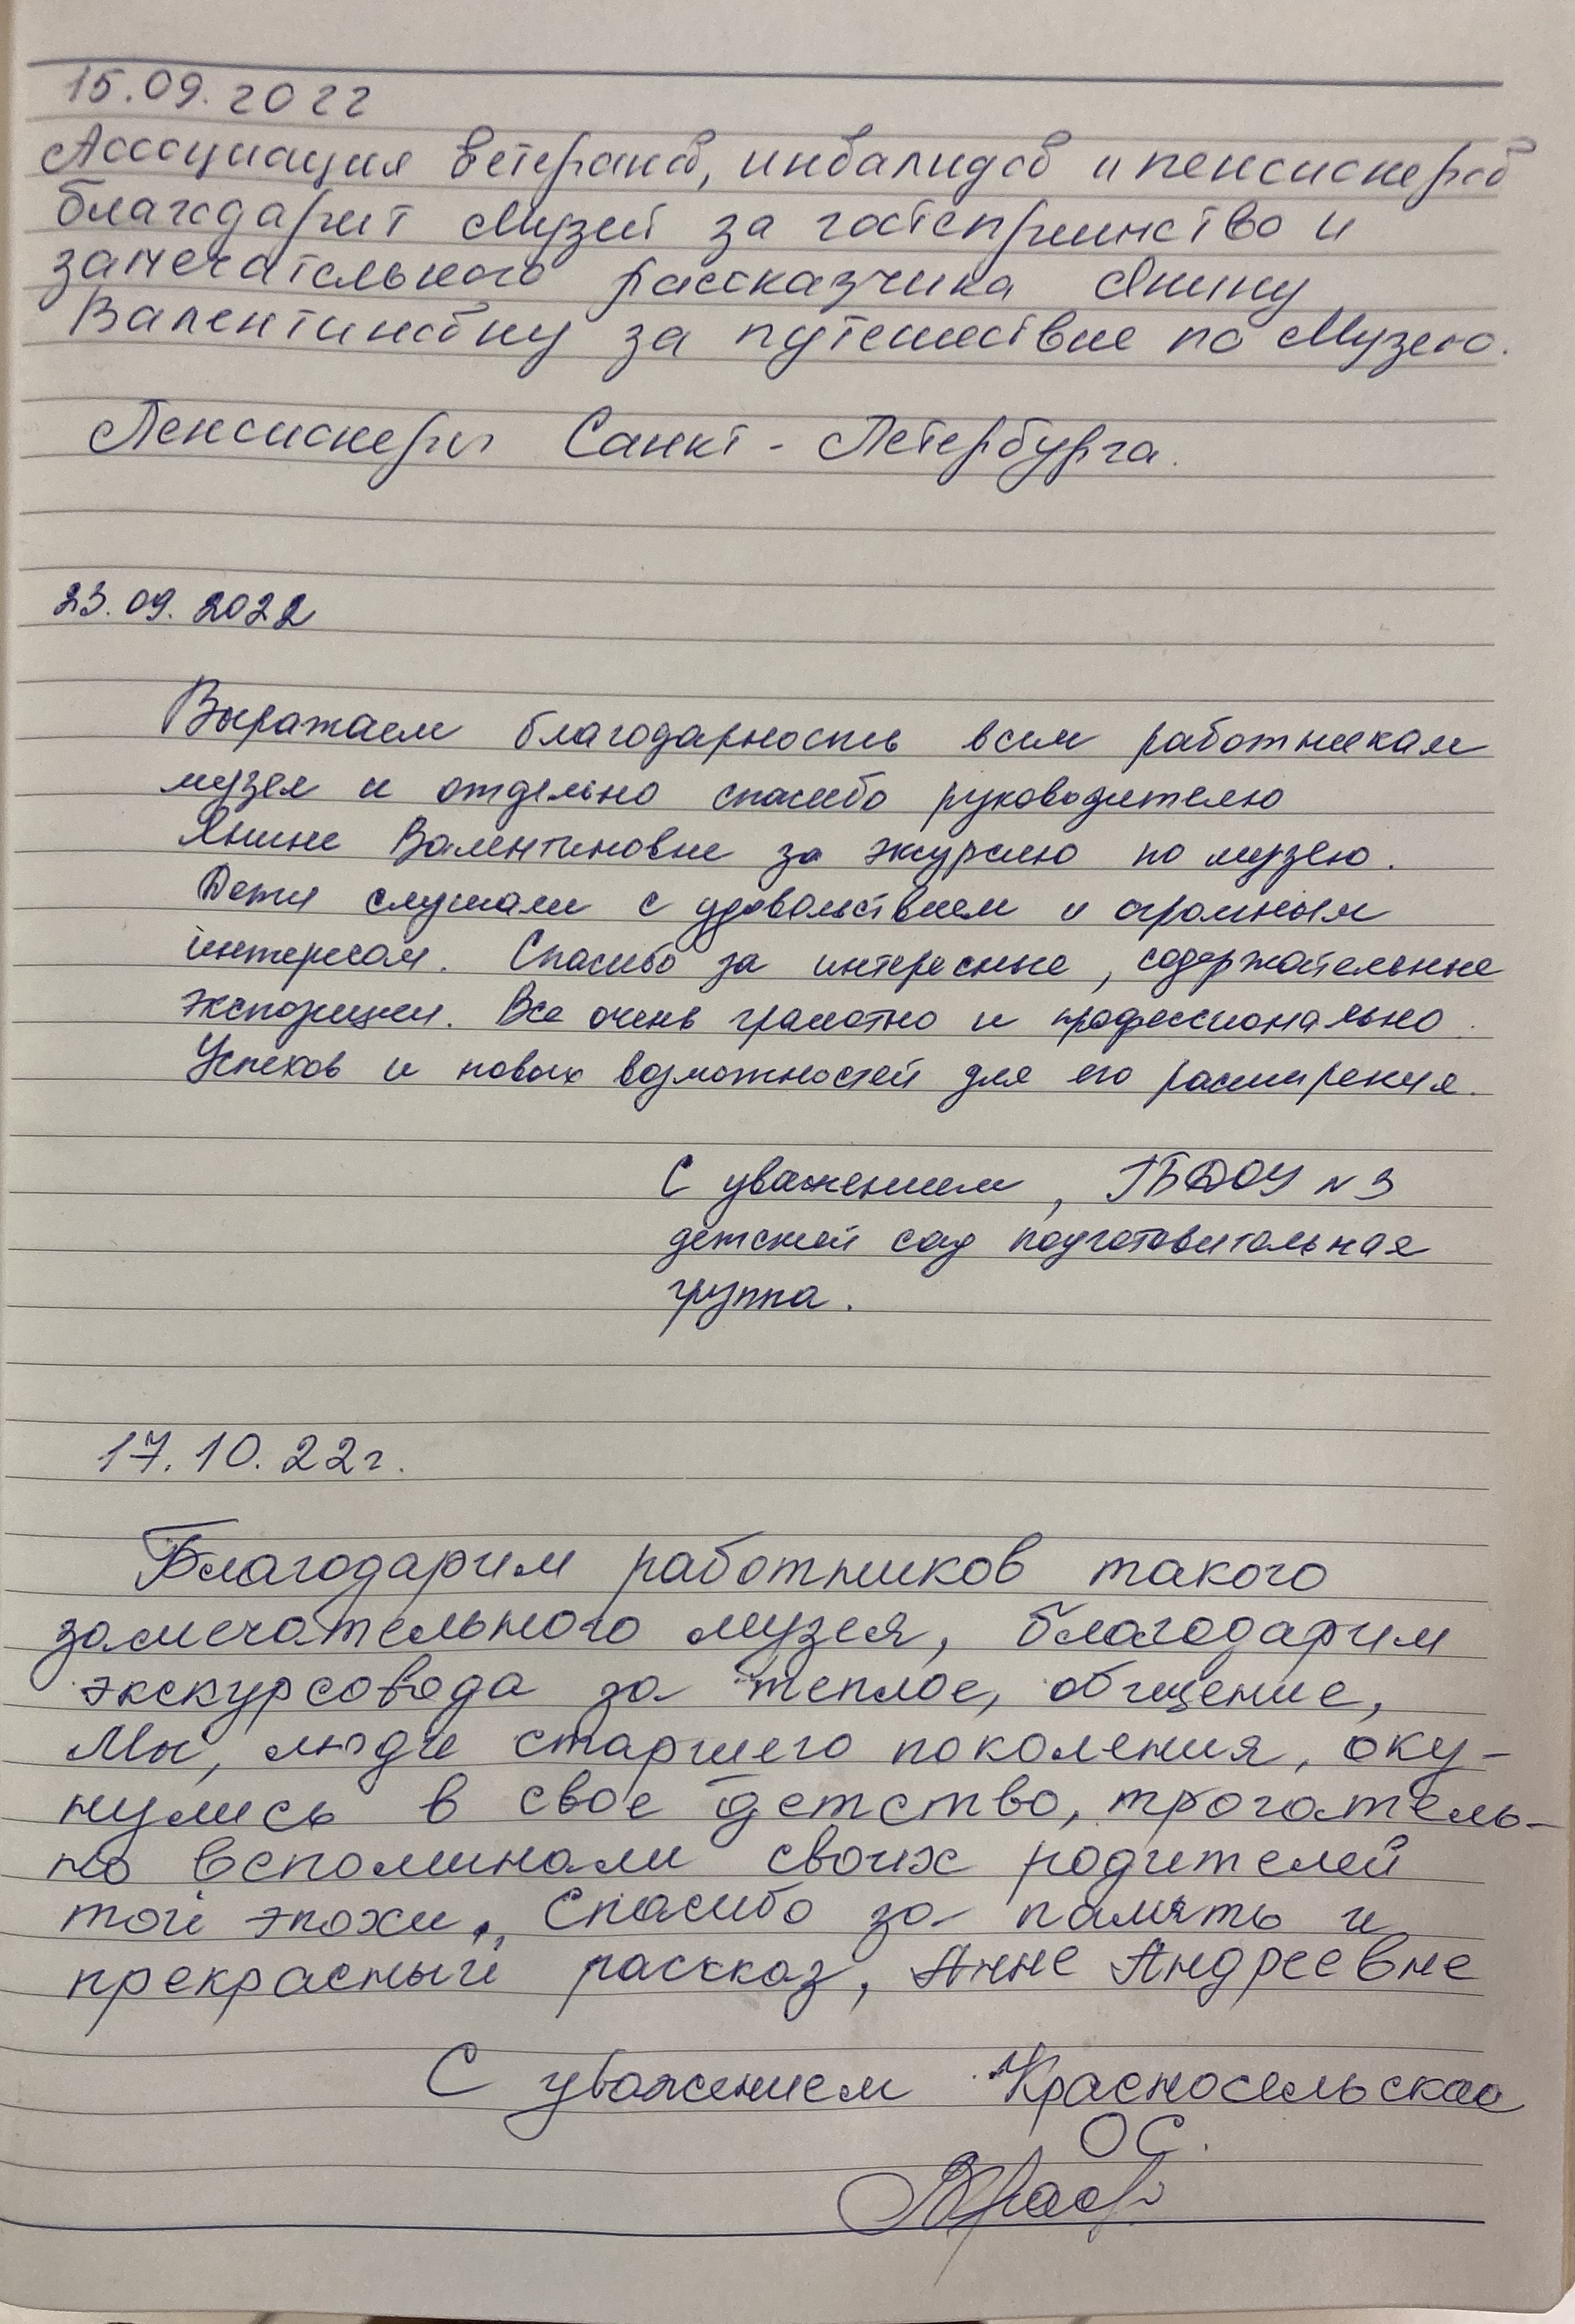 15.09.2022
Ассоциация ветеранов, инвалидов и пенсионеров
благодарит Музей за гостеприинство и
замечательного рассказчика Янину
Валентиновну за путешествие по Музею.
Пенсионеры Санкт - Петербурга.
23.09.2022
Выражаем благодарность всем работникам
музея и отдельно спасибо руководителю
Янине Валентиновне за экурсию по музею.
Дети слушали с удовольствием и огромным
интересом. Спасибо за интересные, содержательные
экспозиции. Все очень грамотно и профессионально.
Успехов и новых возможностей для его расширения.
С уважением, ГБДОУ № 3
детский сад подготовительная
группа.
17.10.22г.
Благодарим работников такого
замечательного музея, благодарим
экскурсовода за теплое, общение,
Мы, люди старшего поколения, оку-
нулись в свое детство, трогатель-
но вспоминали своих родителей
той эпохи., Спасибо за память и
прекрасный рассказ, Анне Андреевне
С уважением Красносельское
ОС.